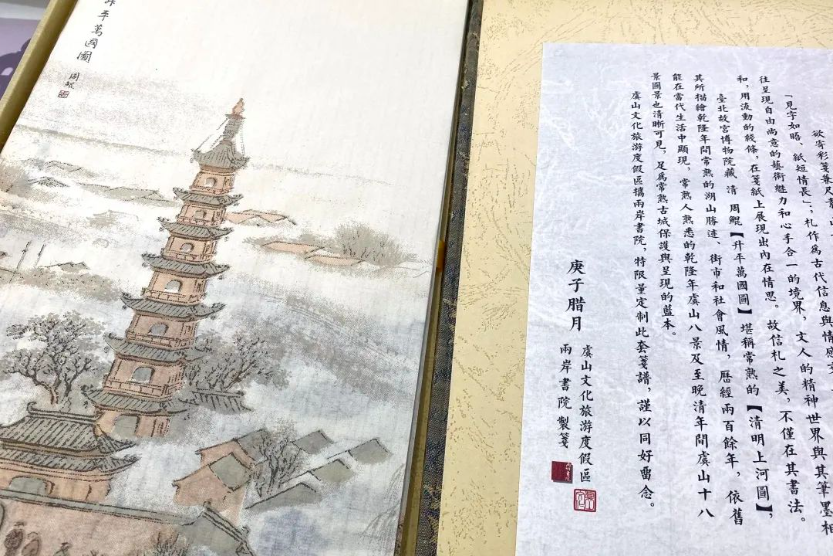 平萬國圖
周鯤
欲寄彩箋兼尺素
「見字如晤、紙短情長」;札作為古代信息與情感交
往呈現自由尚意的藝術魅力和心手合一的境界,文人的精神世界與其筆墨相
和,用流動的綫條,在箋紙上展現出內在情思。故信札之美,不僅在其書法。
臺北故宮博物院藏 清 周鯤【升平萬國圖】堪稱常熟的【清明上河圖】,
其所描繪乾隆年間常熟的湖山勝迹、街市和社會風情,歷經兩百餘年,依舊
能在當代生活中顯現,常熟人熟悉的乾隆年虞山八景及至晚清年間虞山十八
景圖景也清晰可見,足為常熟古城保護與呈現的藍本。
虞山文化旅游度假區攜兩岸書院,特限量定制此套箋譜,謹以同好留念。
庚子腊月
虞山文化旅游度假區
兩岸書院製箋